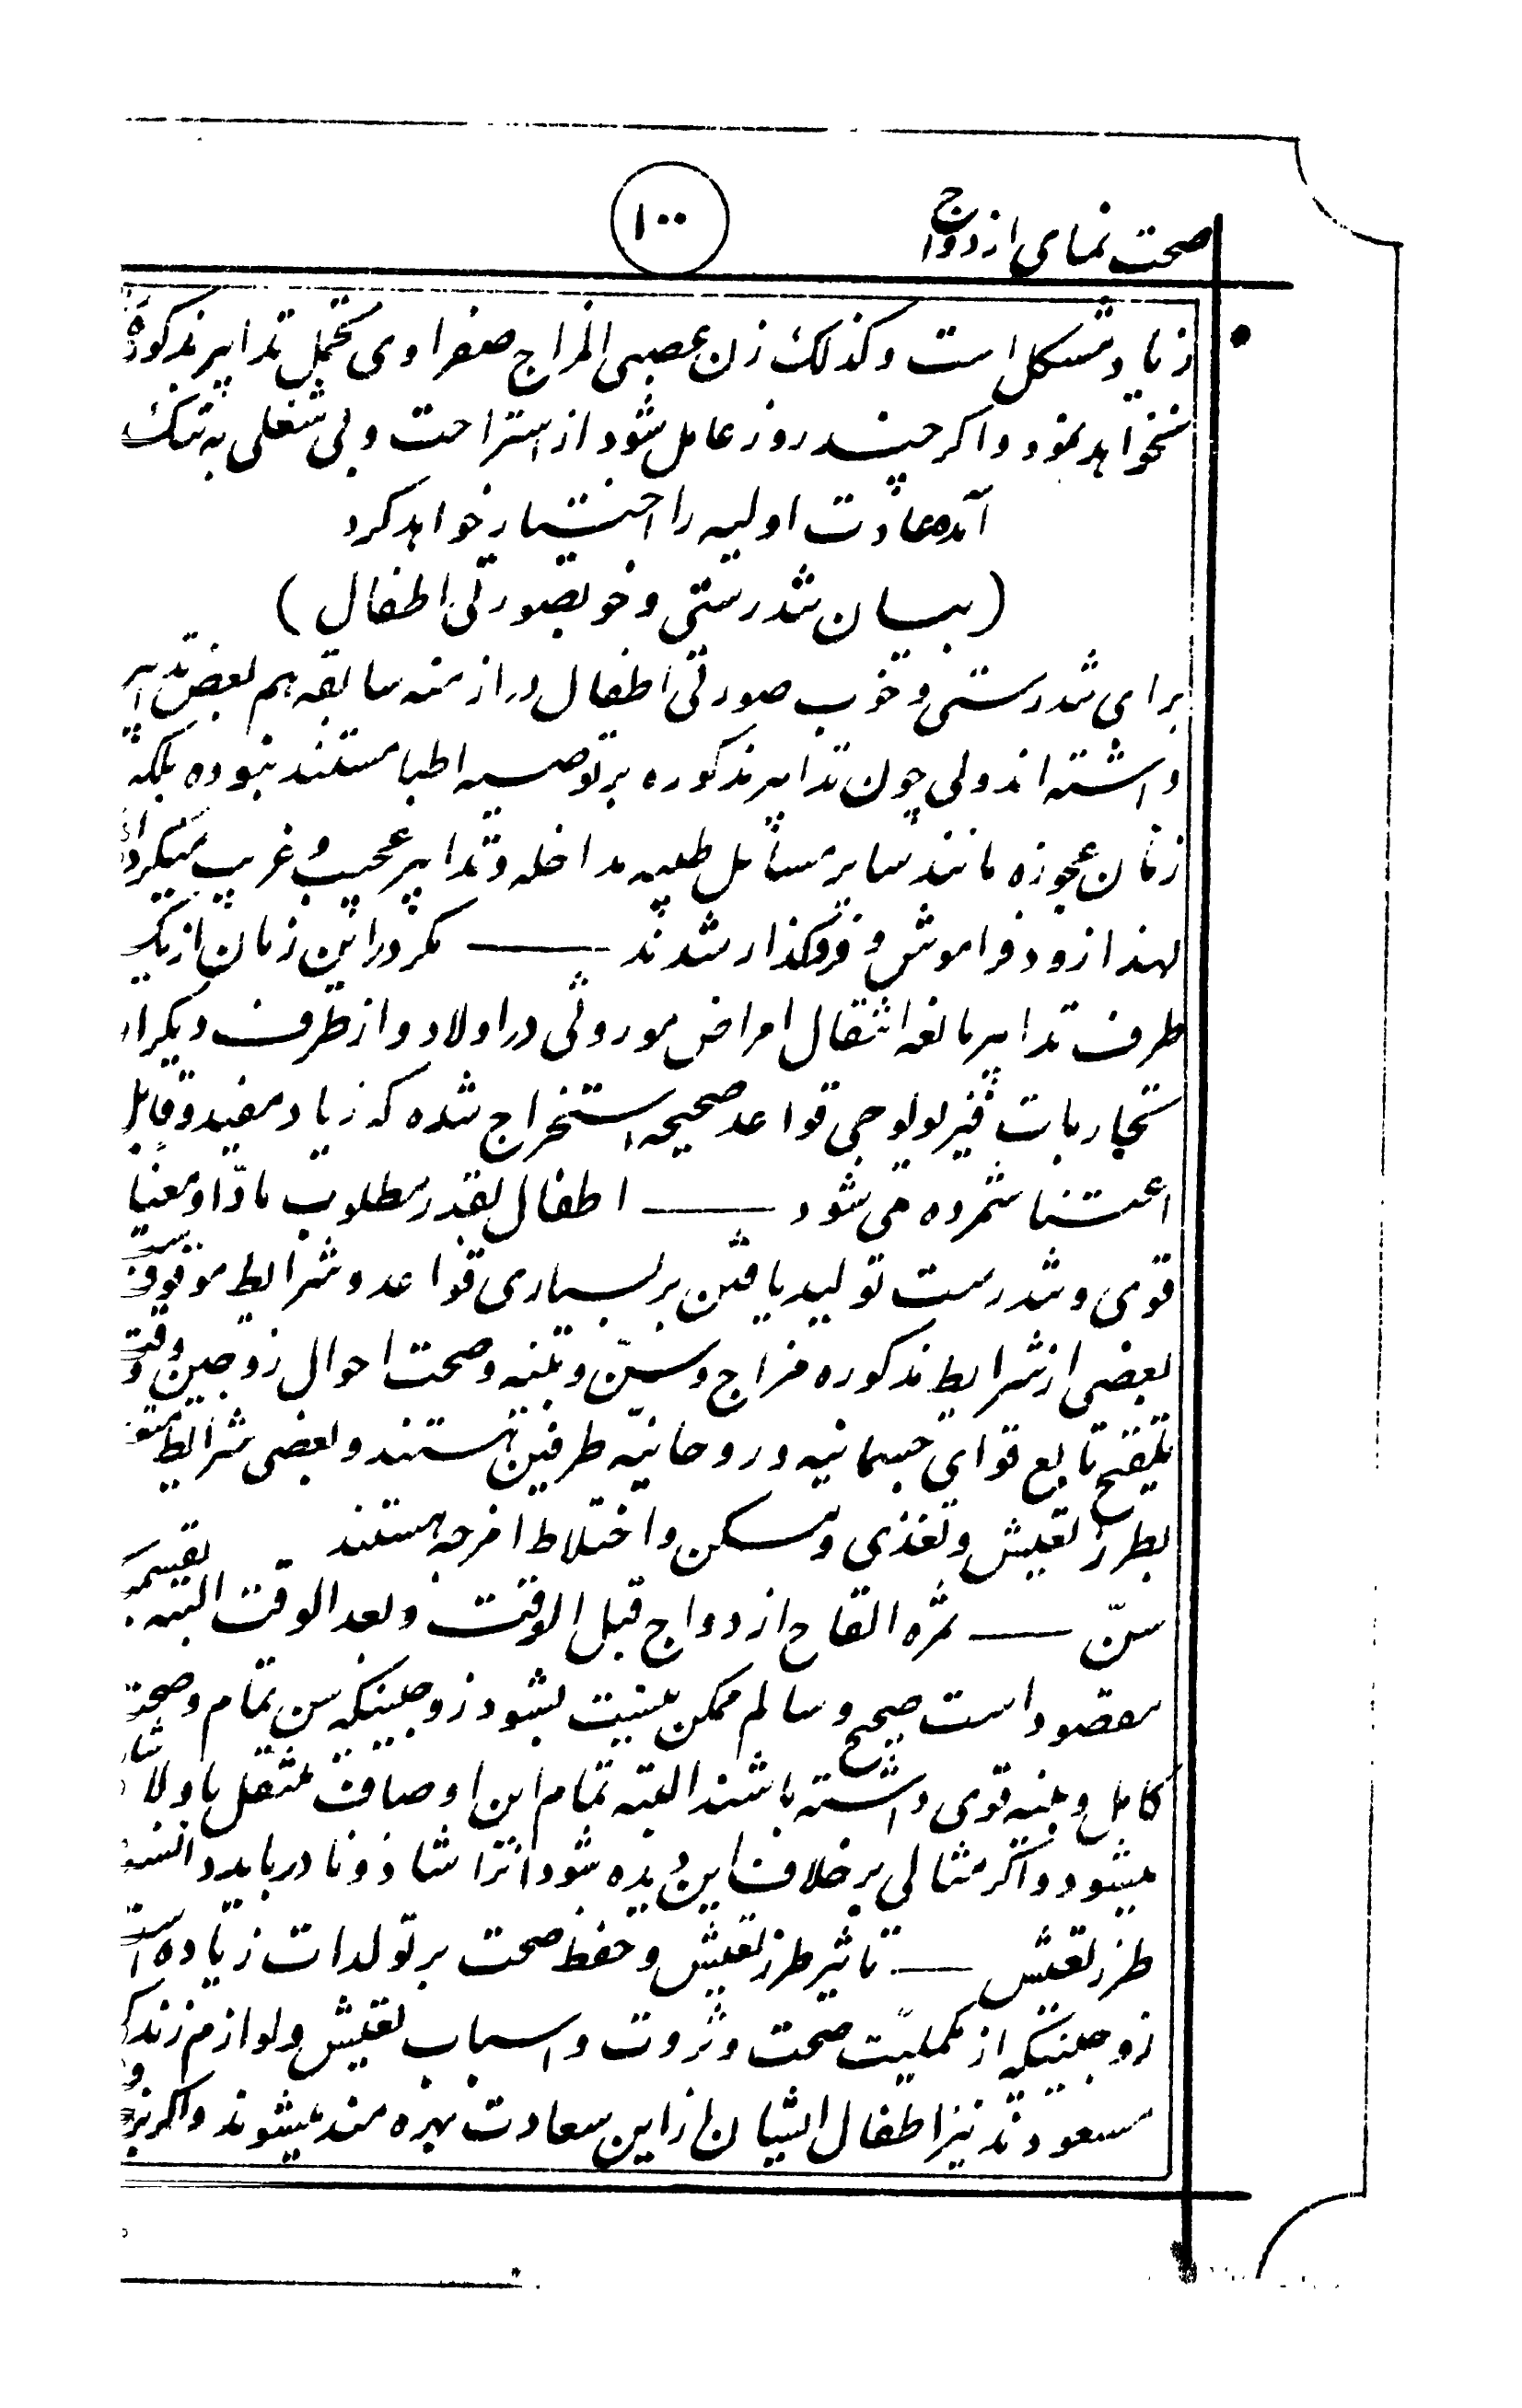 صحت نمای ازدواج
۱۰۰
زیاد مشکل است و کذلک زن عصبی المزاج صفراوی تحمل تدابیر مذکوره
نخواهد نمود و اکر چند روز عامل شود از استراحت و بی شغلی به تنک
آمده عادت اولیه را اختیار خواهد کرد
(بیان تندرستی و خوبصورتی اطفال)
برای تندرستی و خوب صورتی اطفال در ازمنه سابقه هم بعض تدابیر
داشته اند ولی چون تدابیر مذکوره بر توصیه اطبا مستند نبوده بلکه
زنان عجوزه مانند سایر مسائل طبیه مداخله و تدابیر عجیب و غریب میکردند
لهذا زود فراموش و فروکذار شدند — مکر در این زمان از یک
طرف تدابیر مانعه انتقال امراض موروثی در اولاد و از طرف دیکر از
تجاربات فیزیولوجی قواعد صحیحه استخراج شده که زیاد مفید و قابل
اعتنا شمرده می شود — اطفال بقدر مطلوب مادتا و معنیا
قوی و تندرست تولید یافتن بر بسیاری قواعد و شرایط موقوفست
بعضی از شرایط مذکوره مزاج و سن و بنیه و صحت احوال زوجین و وقت
تلقیح تابع قوای جسمانیه و روحانیه طرفین هستند و بعضی شرایط
بطرز تعیش و تغذی و مسکن و اختلاط امزجه هستند
سنّ — ثمره القاح ازدواج قبل الوقت و بعد الوقت البته
مقصود است صحیح و سالم ممکن نیست بشود زوجینیکه سن تمام و صحت
کامل و بنیه قوی داشته باشند البته تمام این اوصاف منتقل باولاد شان
میشود و اکر مثالی بر خلاف این دیده شود انرا شاذ و نادر باید دانست
طرز تعیش — تاثیر طرز تعیش و حفظ صحت بر تولدات زیاده است
زوجینیکه از مکملیت صحت و ثروت و اسباب تعیش و لوازم زندکی
مسعودند نیز اطفال ایشان از این سعادت بهره مند میشوند و اکر